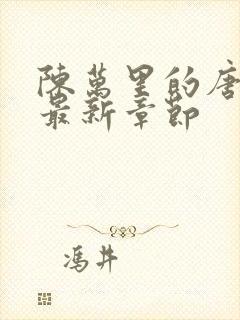 陳萬里的唐
最新章節
馮井